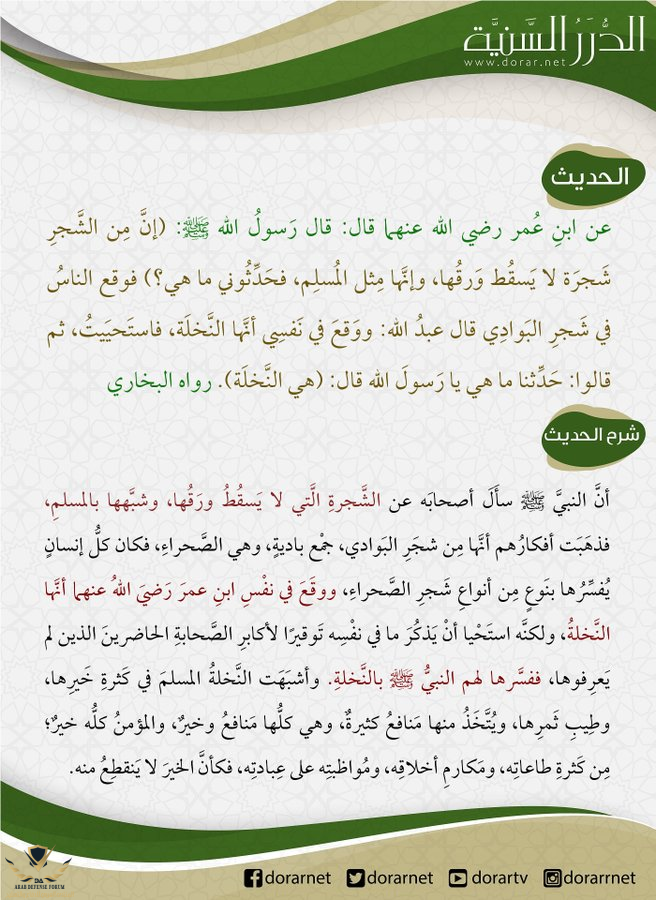 الدُّرَرُ السَّنيَّة
www.dorar.net
الحديث
عن ابنِ عُمر رضي الله عنهما قال: قال رَسولُ الله ﷺ: (إنَّ مِن الشَّجرِ
شَجرَة لا يَسقُط وَرقُها، وإنَّها مِثل المُسلِم، فحَدِّثُوني ما هي؟) فوقع الناسُ
في شَجرِ البَوادِي قال عبدُ الله: ووَقعَ في نَفسِي أنَّها النَّخلَة، فاستَحيَيتُ، ثم
قالوا: حَدِّثنا ما هي يا رَسولَ الله قال: (هي النَّخلَة). رواه البخاري
شرح الحديث
أنَّ النبيَّ ﷺ سأَلَ أصحابَه عن الشَّجرةِ الَّتي لا يَسقُطُ ورَقُها، وشبَّهها بالمسلمِ،
فذهَبَت أفكارُهم أنَّها مِن شجَرِ البَوادي، جمْع باديةٍ، وهي الصَّحراءِ، فكان كلُّ إنسانٍ
يُفسِّرُها بنَوعٍ مِن أنواعِ شَجرِ الصَّحراءِ، ووقَعَ في نفْسِ ابنِ عمرَ رَضيَ اللهُ عنهما أنَّها
النَّخلةُ، ولكنَّه استَحْيا أنْ يَذكُرَ ما في نفْسِه تَوقيرًا لأكابرِ الصَّحابةِ الحاضرينَ الذين لم
يَعرِفوها، ففسَّرها لهم النبيُّ ﷺ بالنَّخلةِ. وأشبَهَت النَّخلةُ المسلمَ في كَثرةِ خَيرِها،
وطِيبِ ثَمرِها، ويُتَّخَذُ منها مَنافعُ كثيرةٌ، وهي كلُّها مَنافعُ وخيرٌ، والمؤمنُ كلُّه خيرٌ؛
مِن كَثرةِ طاعاتِه، ومَكارمِ أخلاقِه، ومُواظبتِه على عِبادتِه، فكأنَّ الخيرَ لا يَنقطِعُ منه.
DA
ARAB DEFENSE FORUM
dorarnet dorarnet dorartv dorarrnet